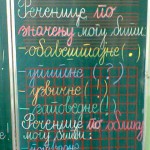 Реченице по
значењу могу бити:
- обавештајне (.)
- упитне (?)
- узвичне (!)
- заповедне (!)
Реченице по облику
могу бити: